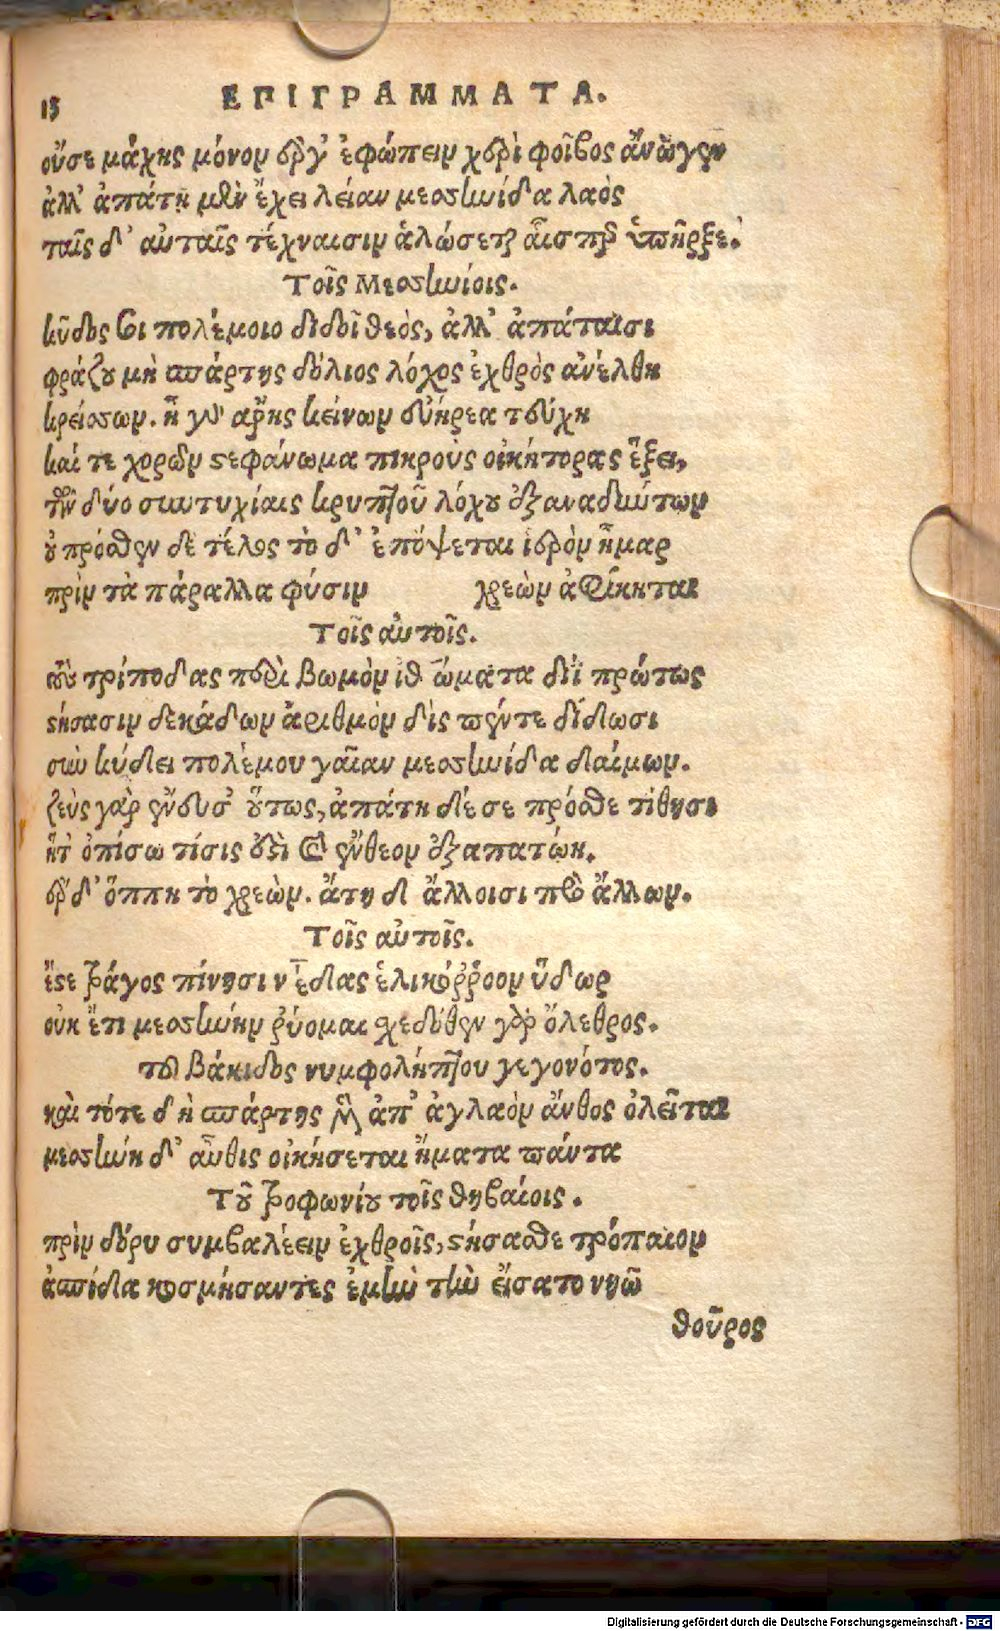 13 ΕΠΙΓΡΑΜΜΑΤΑ.
οὔσε μάχης μόνον ἔργ' ἐφώπειν χερὶ φοῖβος ἄνωγεν
ἀλλ' ἀπάτῃ μὲν ἔχει λείαν μεσσηνίδα λαὸς
ταῖς δ' αὐταῖς τέχναισιν ἁλώσεται αἷσπερ ὑπῆρξε.
Τοῖς Μεσσηνίοις.
κῦδός σοι πολέμοιο διδοῖ θεὸς, ἀλλ' ἀπάταισι
φράζου μὴ σπάρτης δόλιος λόχος ἐχθρὸς ἀνέλθῃ
κρείσσων. ἦ γὰρ ἄρης κείνων εὐήρεα τεύχη
καί τε χορῶν στεφάνωμα πικροὺς οἰκήτορας ἕξει,
τῶν δύο συντυχίαις κρυπτοῦ λόχου ἐξαναδύντων
οὐ πρόσθεν δὲ τέλος τὸ δ' ἐπόψεται ἱερὸν ἦμαρ
πρὶν τὰ πάραλλα φύσιν χρεὼν ἀφίκηται
Τοῖς αὐτοῖς.
τοῖς τρίποδας περὶ βωμὸν ἰθ ώματα διῒ πρώτως
στήσασιν δεκάδων ἀριθμὸν δὶς πέντε δίδωσι
σὺν κύδει πολέμου γαῖαν μεσσηνίδα δαίμων.
ζεὺς γὰρ ἔνευσ' οὕτως, ἀπάτη δέ σε πρόσθε τίθησι
ἥτ' ὀπίσω τίσις ἐστὶ καὶ ἔνθεον ἐξαπατῴη.
ἔρδ' ὅππῃ τὸ χρεὼν. ἄτη δ ἄλλοισι πρὸ ἄλλων.
Τοῖς αὐτοῖς.
ἔστε τράγος πίνῃσι ν έδας ἑλικόῤῥοον ὕδωρ
οὐκ ἔτι μεσσήνην ῥύομαι σχεδόθεν γὰρ ὄλεθρος.
τοῦ βάκιδος νυμφολήπτου γεγονότος.
καὶ τότε δὴ σπάρτης μὲν ἀπ' ἀγλαὸν ἄνθος ὀλεῖται
μεσσήνη δ' αὖθις οἰκήσεται ἤματα πάντα
Τοῦ τροφωνίου τοῖς θηβαίοις.
πρὶν δόρυ συμβαλέειν ἐχθροῖς, στήσασθε τρόπαιον
ἀσπίδα κοσμήσαντες ἐμὴν τὴν εἵσατο νηῶ
θοῦρος
Digitalisierung gefördert durch die Deutsche Forschungsgemeinschaft - DFG